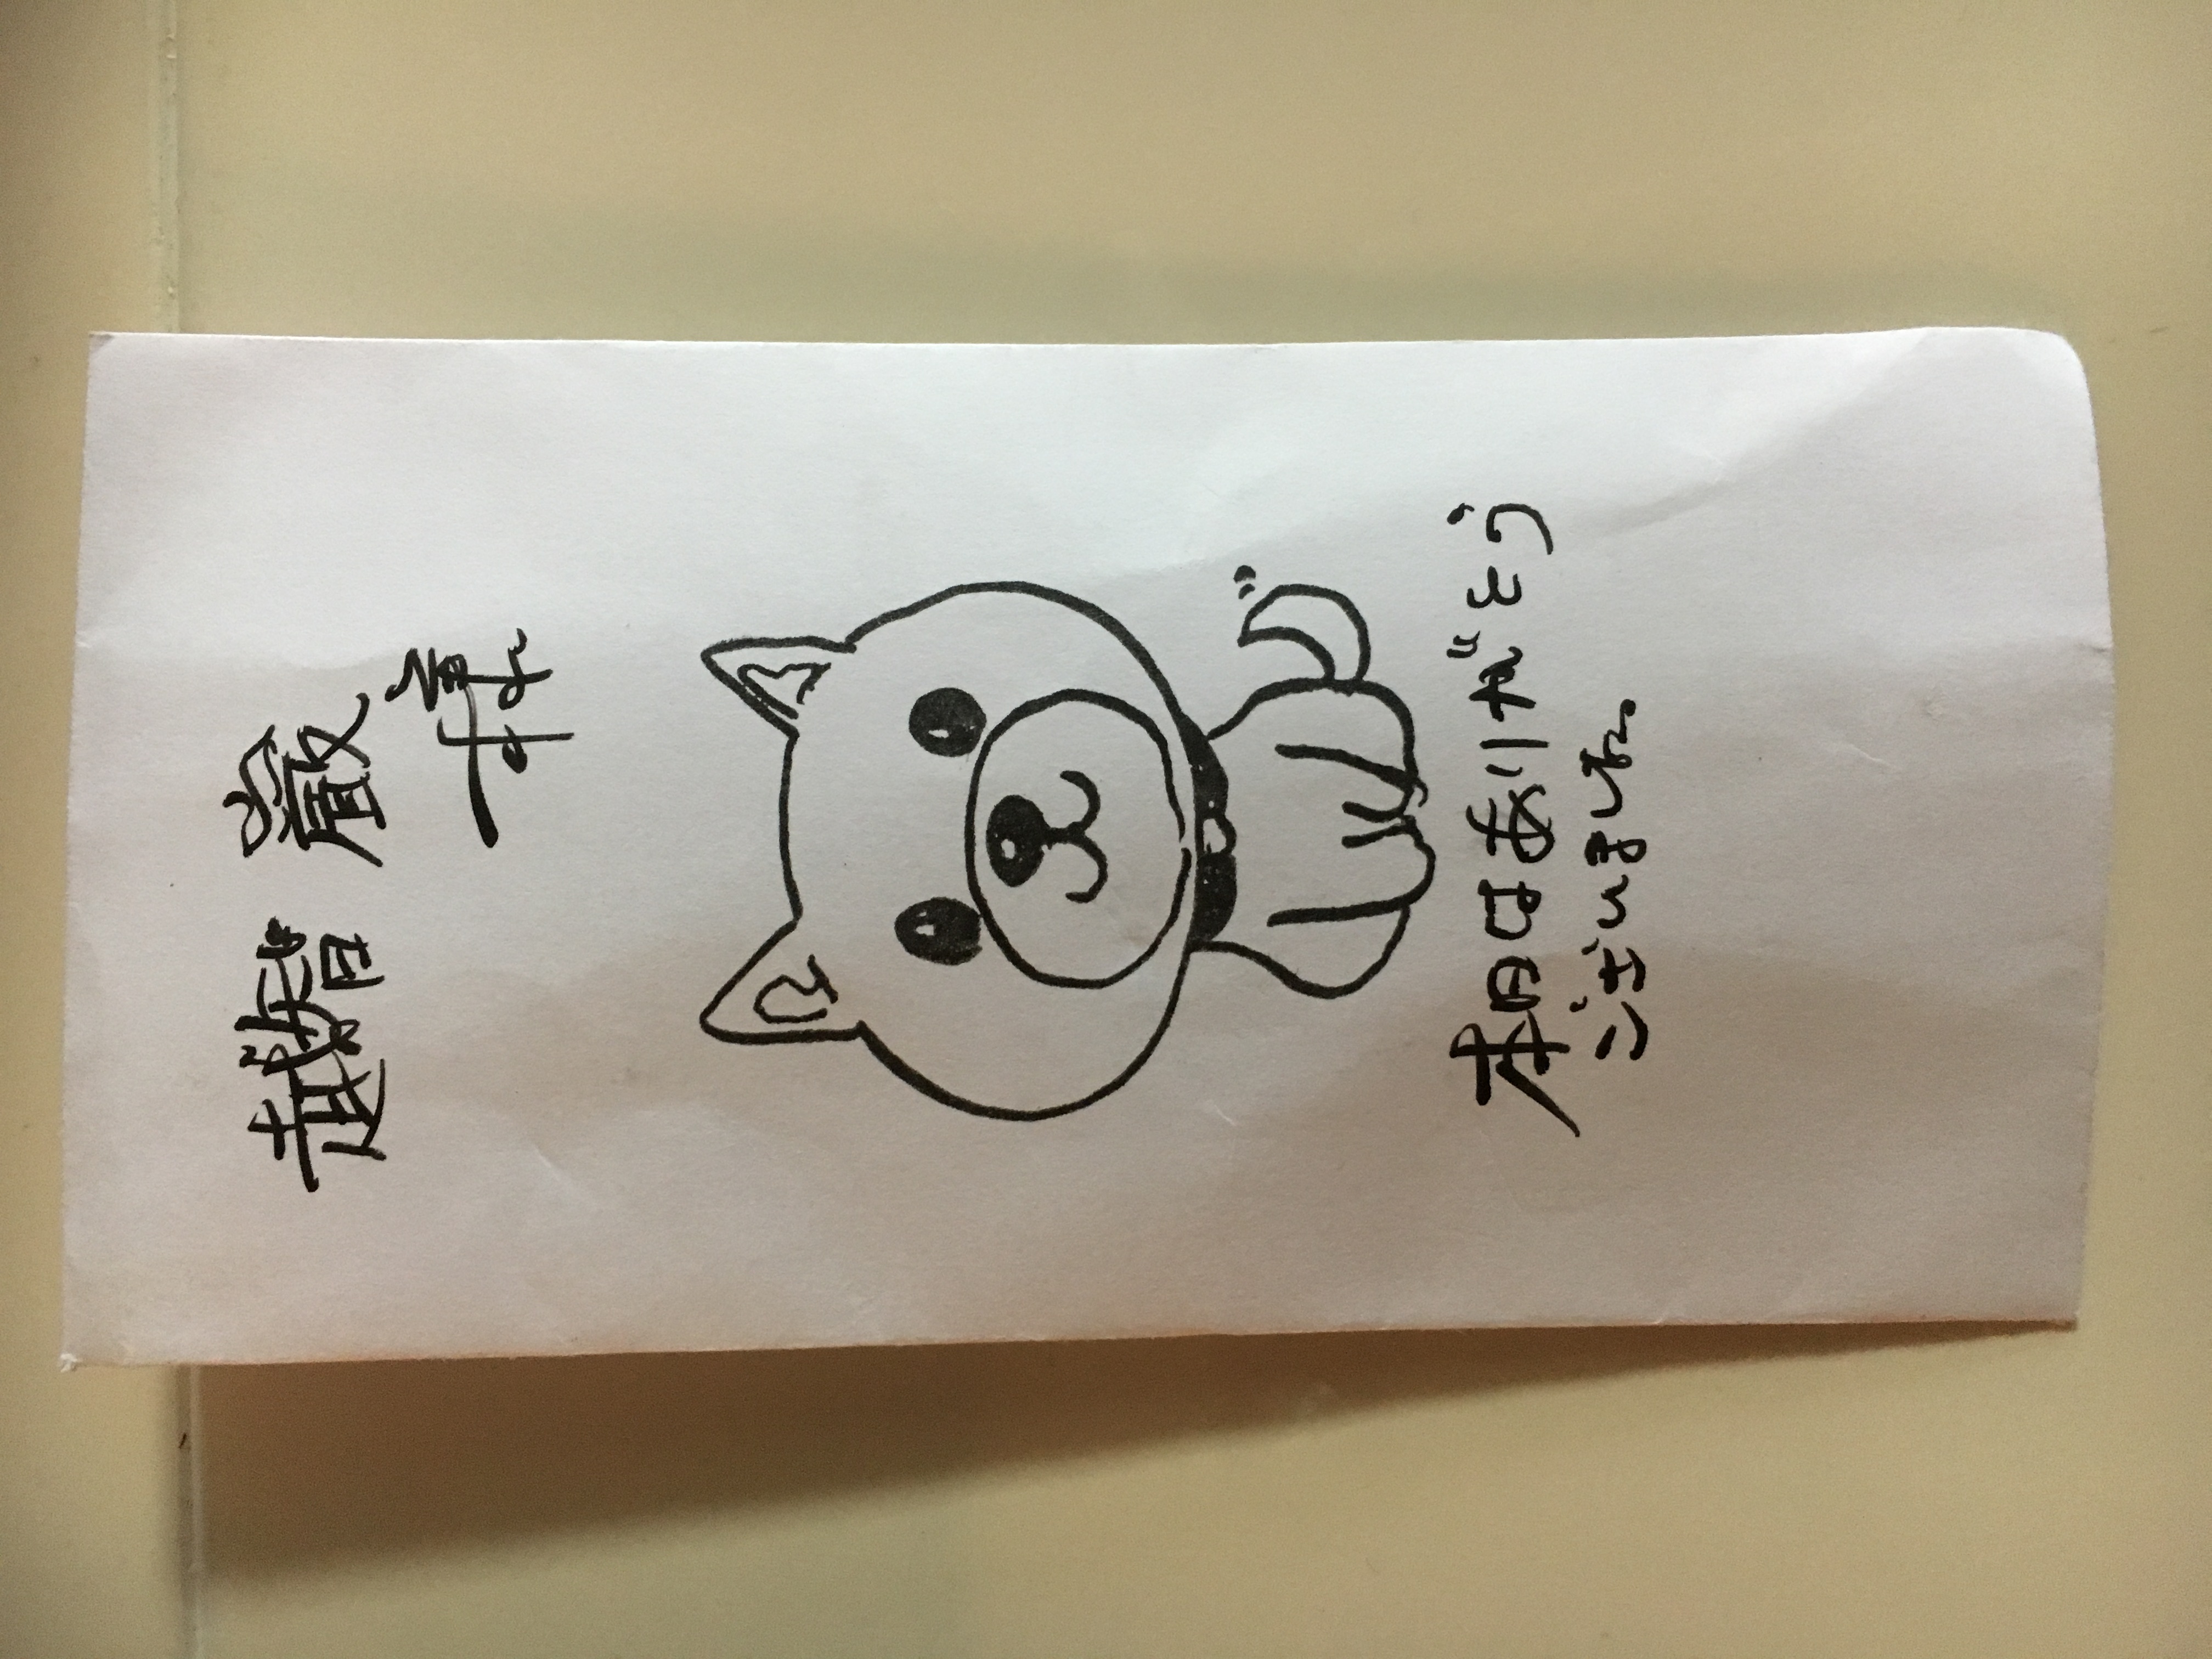 越智 巌
様
本日はありがとう
ございました。